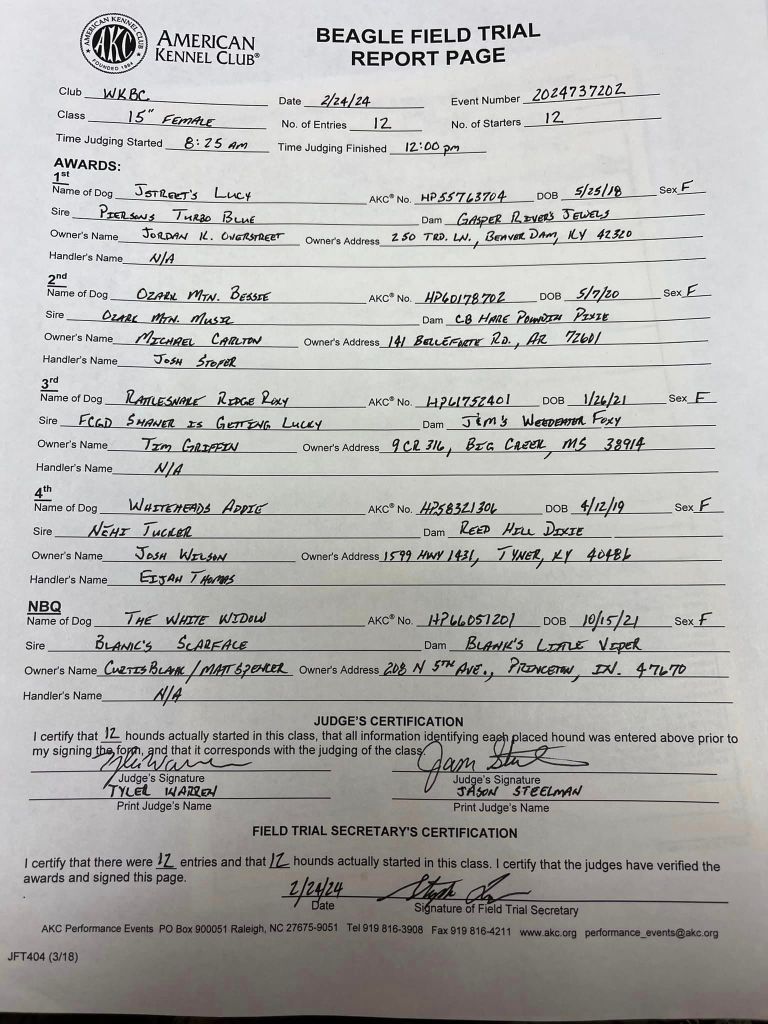 AMERICAN KENNEL CLUB
AKC
FOUNDED 1884
AMERICAN
KENNEL CLUB®
BEAGLE FIELD TRIAL
REPORT PAGE
Club WKBC Date 2/24/24 Event Number 2024737202
Class 15" FEMALE No. of Entries 12 No. of Starters 12
Time Judging Started 8:25 AM Time Judging Finished 12:00 pm
AWARDS:
1st
Name of Dog JSTREET'S LUCY AKC® No. HP55763704 DOB 5/25/18 Sex F
Sire PIERSONS TURBO BLUE Dam GASPER RIVER'S JEWELS
Owner's Name JORDAN K. OVERSTREET Owner's Address 250 TRD. LN., BEAVER DAM, KY 42320
Handler's Name N/A
2nd
Name of Dog OZARK MTN. BESSIE AKC® No. HP60178702 DOB 5/7/20 Sex F
Sire OZARK MTN. MUSIC Dam CB HARE POUNDIN PIXIE
Owner's Name MICHAEL CARLTON Owner's Address 141 BELLEFORTE RD., AR 72601
Handler's Name JOSH STOFER
3rd
Name of Dog RATTLESNAKE RIDGE ROXY AKC® No. HP61752401 DOB 1/26/21 Sex F
Sire FCGD SHANER IS GETTING LUCKY Dam JIM'S WEEDEATER FOXY
Owner's Name TIM GRIFFIN Owner's Address 9 CR 316, BIG CREEK, MS 38914
Handler's Name N/A
4th
Name of Dog WHITEHEADS ADDIE AKC® No. HP58321306 DOB 4/12/19 Sex F
Sire NEHI TUCKER Dam REED HILL DIXIE
Owner's Name JOSH WILSON Owner's Address 1599 HWY 1431, TYNER, KY 40486
Handler's Name EIJAH THOMAS
NBQ
Name of Dog THE WHITE WIDOW AKC® No. HP66051201 DOB 10/15/21 Sex F
Sire BLANK'S SCARFACE Dam BLANK'S LITTLE VIPER
Owner's Name CURTIS BLANK / MATT SPENCER Owner's Address 208 N 5TH AVE., PRINCETON, IN. 47670
Handler's Name N/A
JUDGE'S CERTIFICATION
I certify that 12 hounds actually started in this class, that all information identifying each placed hound was entered above prior to
my signing the form, and that it corresponds with the judging of the class.
Judge's Signature Judge's Signature
TYLER WARREN JASON STEELMAN
Print Judge's Name Print Judge's Name
FIELD TRIAL SECRETARY'S CERTIFICATION
I certify that there were 12 entries and that 12 hounds actually started in this class. I certify that the judges have verified the
awards and signed this page.
2/24/24
Date Signature of Field Trial Secretary
AKC Performance Events PO Box 900051 Raleigh, NC 27675-9051 Tel 919 816-3908 Fax 919 816-4211 www.akc.org performance_events@akc.org
JFT404 (3/18)